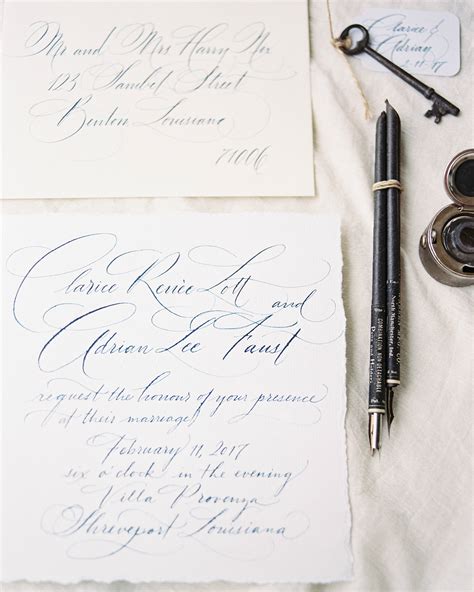 Mr and Mrs Harry Nex
123 Sambel Street
Benton Louisiane
71006
Clarice &
Adrian
2·11·17
Clarice Renèe Lott
and
Adrian Lee Faust
request the honour of your presence
at their marriage
February 11, 2017
six o'clock in the evening
Villa Provenza
Shreveport Louisiana